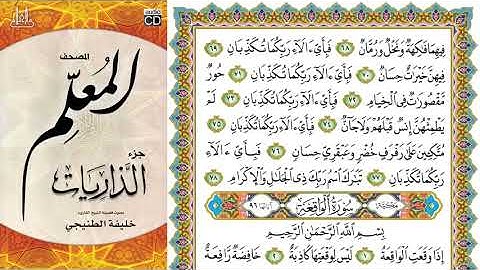 audio
CD
المصحف
المعلم
جزء
الذاريات
بصوت فضيلة الشيخ القارئ
خليفة الطنيجي
فِيهِمَا فَٰكِهَةٌ وَنَخْلٌ وَرُمَّانٌ ٦٨ فَبِأَيِّ ءَالَآءِ رَبِّكُمَا تُكَذِّبَانِ ٦٩
فِيهِنَّ خَيْرَٰتٌ حِسَانٌ ٧٠ فَبِأَيِّ ءَالَآءِ رَبِّكُمَا تُكَذِّبَانِ ٧١ حُورٌ
مَّقْصُورَٰتٌ فِي ٱلْخِيَامِ ٧٢ فَبِأَيِّ ءَالَآءِ رَبِّكُمَا تُكَذِّبَانِ ٧٣ لَمْ
يَطْمِثْهُنَّ إِنسٌ قَبْلَهُمْ وَلَا جَآنٌّ ٧٤ فَبِأَيِّ ءَالَآءِ رَبِّكُمَا تُكَذِّبَانِ ٧٥
مُتَّكِـِٔينَ عَلَىٰ رَفْرَفٍ خُضْرٍ وَعَبْقَرِيٍّ حِسَانٍ ٧٦ فَبِأَيِّ ءَالَآءِ
رَبِّكُمَا تُكَذِّبَانِ ٧٧ تَبَٰرَكَ ٱسْمُ رَبِّكَ ذِي ٱلْجَلَٰلِ وَٱلْإِكْرَامِ ٧٨
سُورَةُ الْوَاقِعَةِ آياتها ٩٦
بِسْمِ ٱللَّهِ ٱلرَّحْمَٰنِ ٱلرَّحِيمِ
إِذَا وَقَعَتِ ٱلْوَاقِعَةُ ١ لَيْسَ لِوَقْعَتِهَا كَاذِبَةٌ ٢ خَافِضَةٌ رَّافِعَةٌ